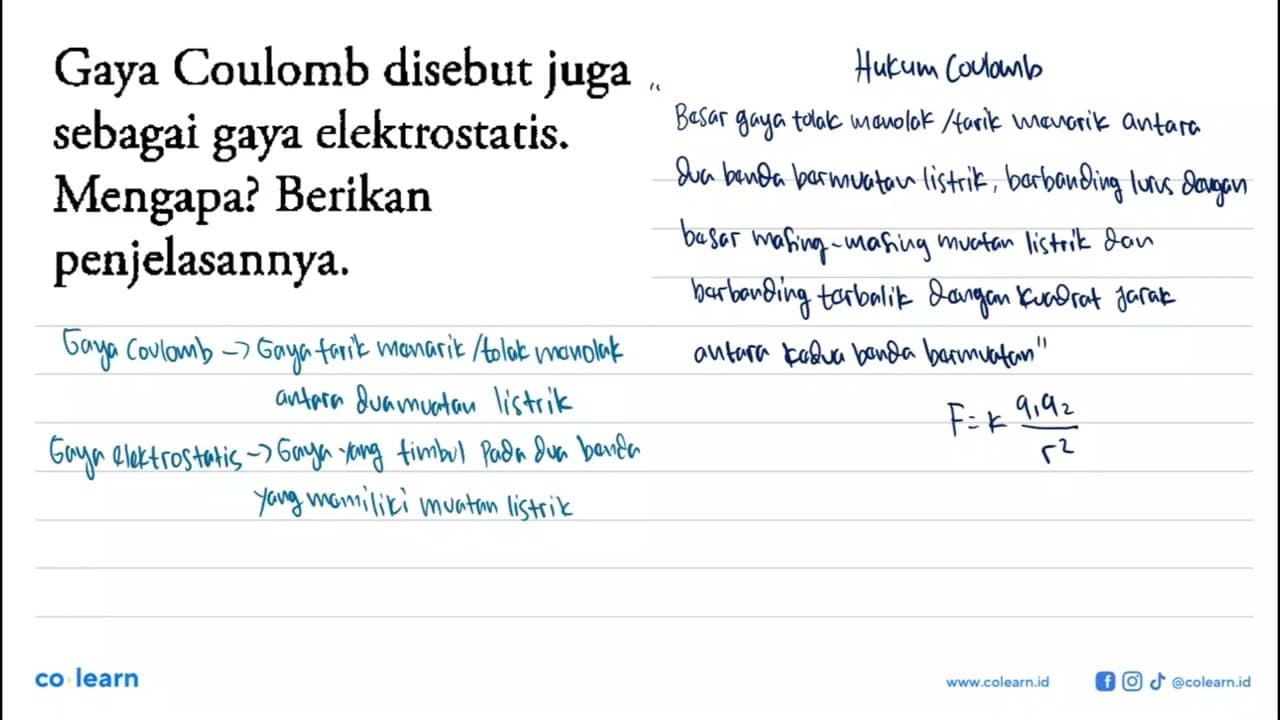 Gaya Coulomb disebut juga
sebagai gaya elektrostatis.
Mengapa? Berikan
penjelasannya.
Hukum Coulomb
"Besar gaya tolak menolak /tarik menarik antara
dua benda bermuatan listrik, berbanding lurus dengan
besar masing-masing muatan listrik dan
berbanding terbalik dengan kuadrat jarak
antara kedua benda bermuatan"
F = k q1 q2 / r²
Gaya Coulomb -> Gaya tarik menarik /tolak menolak
antara dua muatan listrik
Gaya elektrostatis -> Gaya yang timbul pada dua benda
yang memiliki muatan listrik
co learn
www.colearn.id
@colearn.id